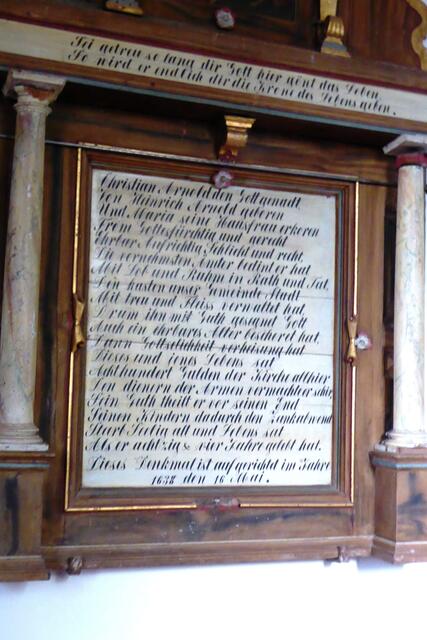 Sei getreu so lang dir Gott hier gönt das Leben,
So wird er endlich dir die Krone des Lebens geben.
Christian Arnold den Gott gemacht
Von Heinrich Arnold geboren
Und Maria seine Hausfrau erkoren
From Gottesfürchtig und gerecht
Ehrbar Aufrichtig Schlecht und recht,
Die vernehmsten Ämter bedint er hat
Mit Lob und Ruhm in Rath und Tat,
Den kasten unser Gemeinde Stadt
Mit treu und Fleis verwaltet hat,
Drum ihn mit Guth gesegnet Gott
Auch ein ehrbares Alter bescherd hat.
Dann Gottseelichkeit verheisung hat
Dieses und jenes Lebens sat
Achthundert Gulden der Kirche allhier
Den dienern der Armen vermachte er
Sein Guth theilt er vor seinen End
Seinen Kindern dadurch den Zank abwend
Starb Seelig alt und Lebens sat
Als er achtzig & vier Jahre gelebt hat.
Dieses Denkmal ist aufgericht im Jahre
1638 den 16 Mai.